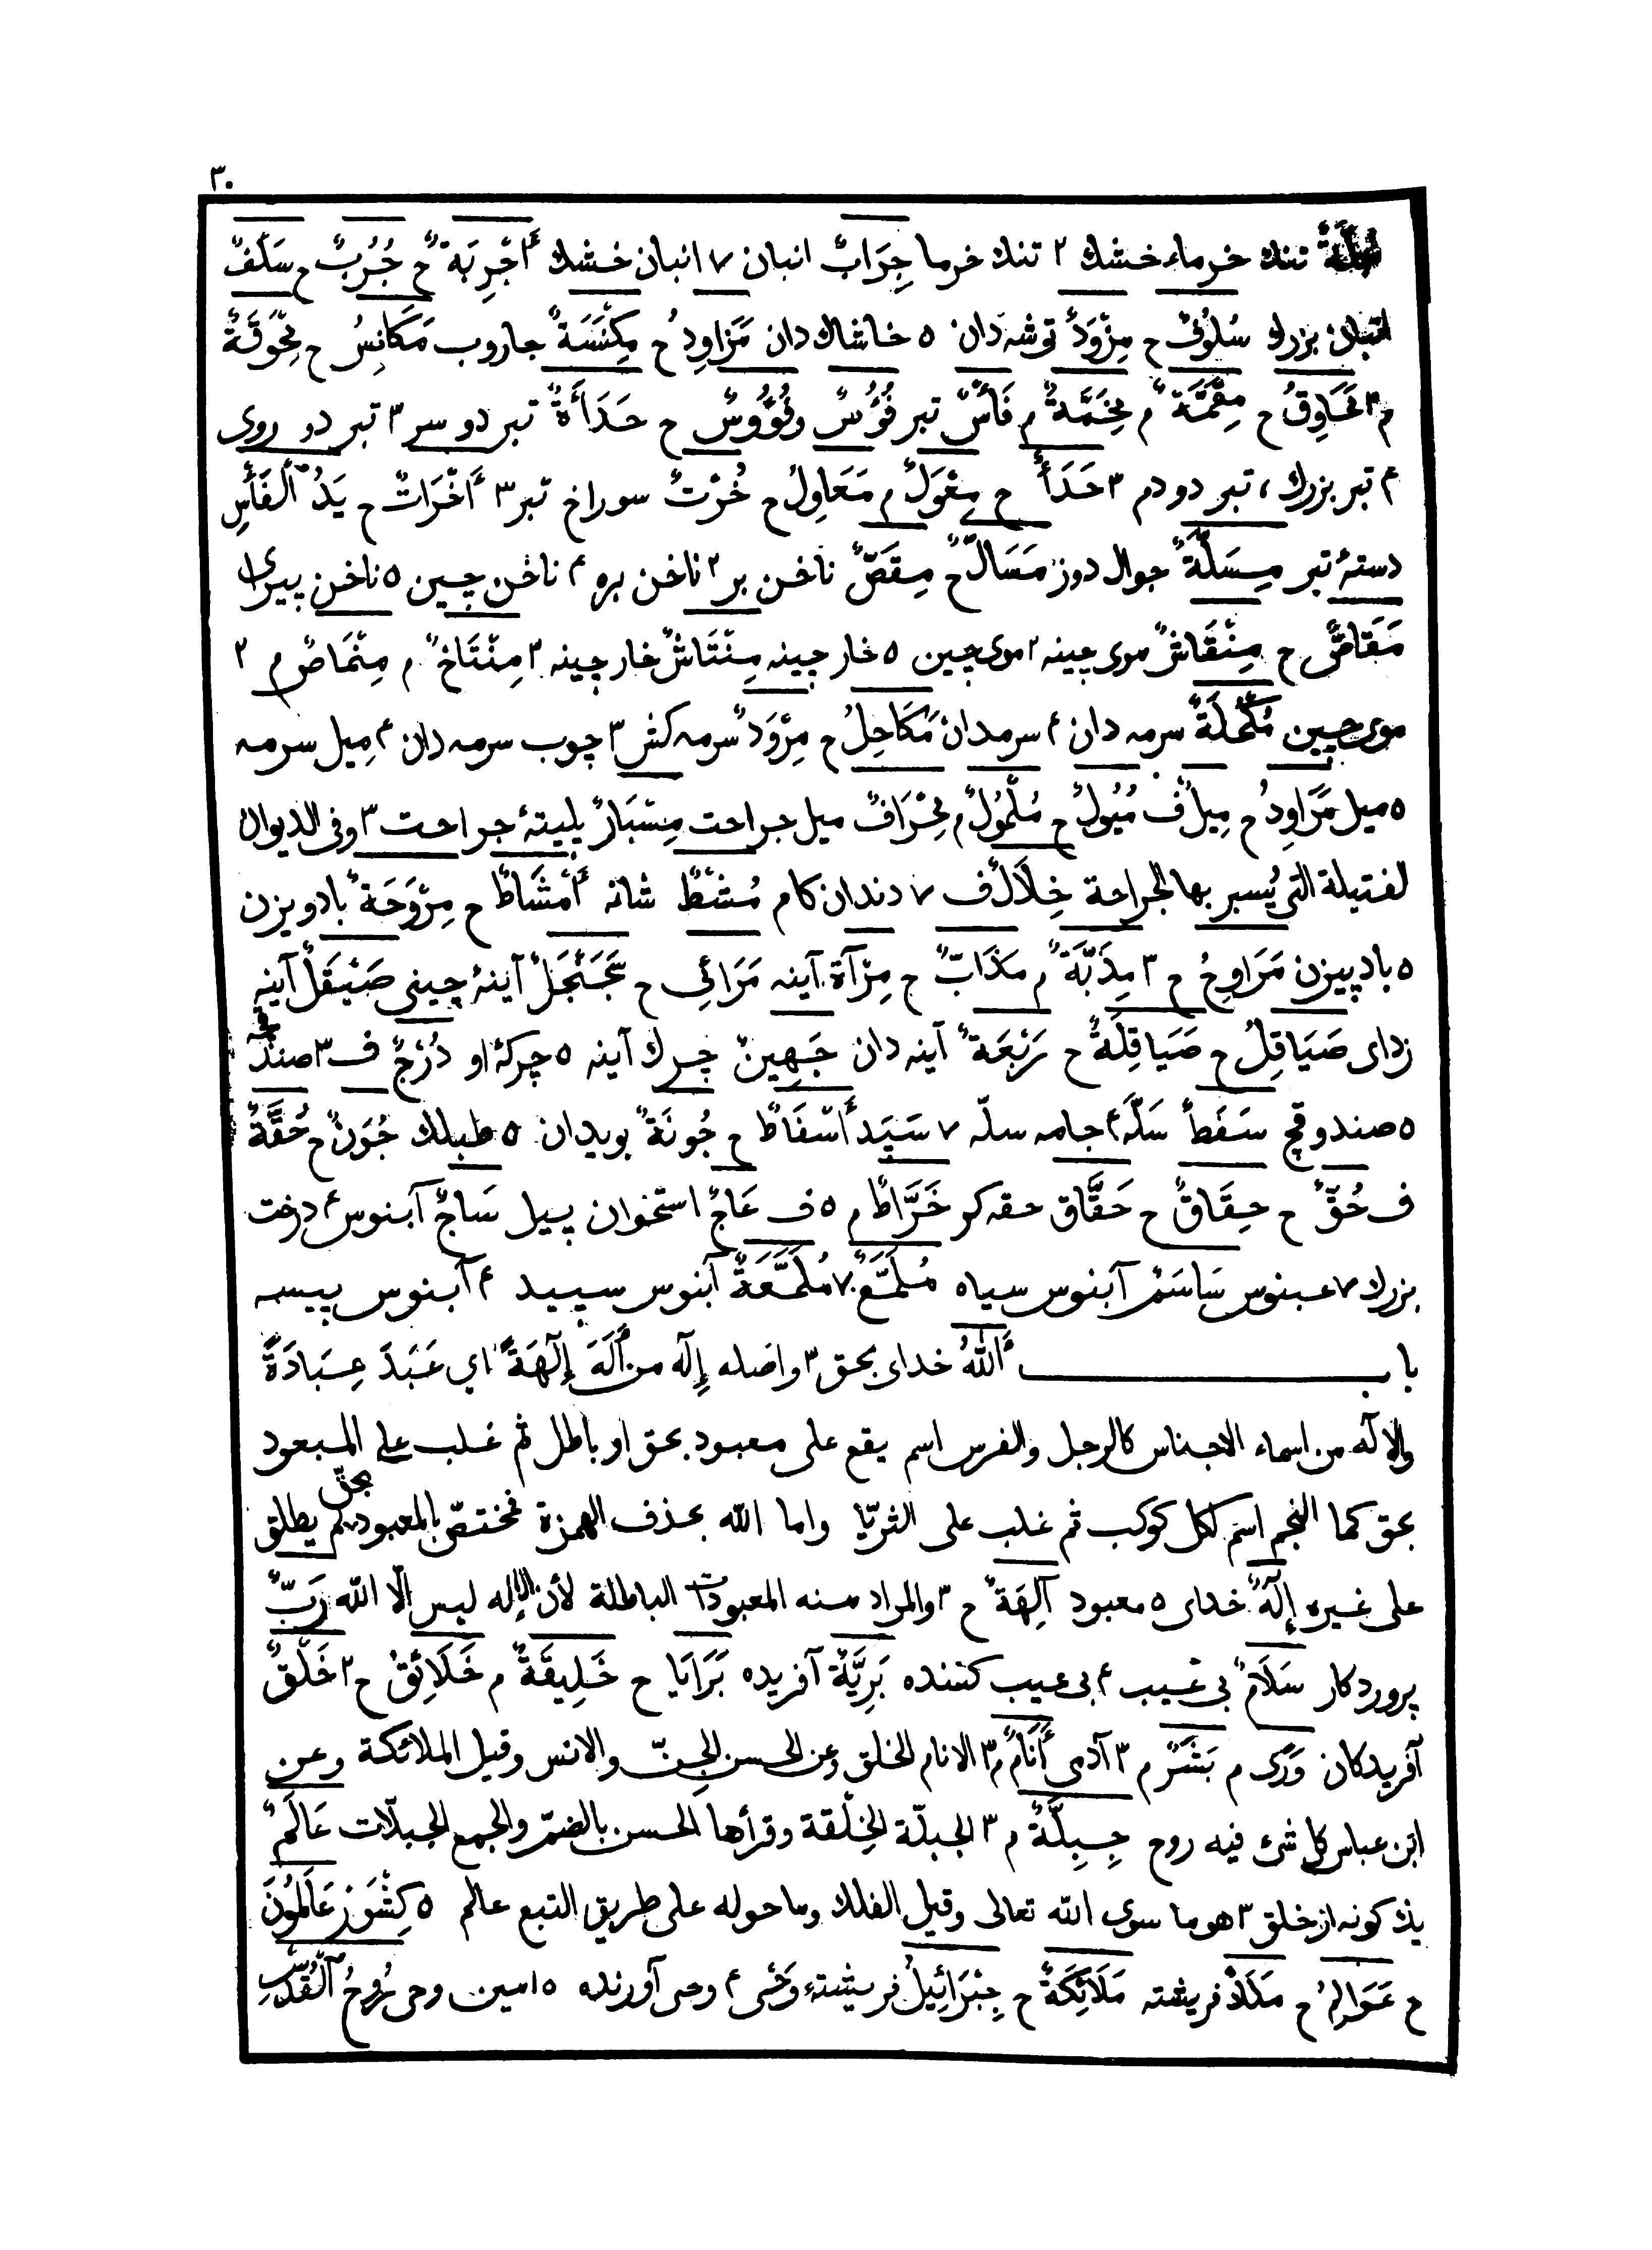 ٣٠
تنك خرماء خشك ٢ تنك خرما جِرَابٌ انبان ٧ انبان خشك أَجْرِبَةٌ ح جُرُبٌ ح سَلْفٌ
انبان بزرك سُلُوفٌ ح مِزْوَدٌ توشه دان ٥ خاشاك دان مَزَاوِدُ ح مِكْنَسَةٌ جاروب مَكَانِسُ ح مِحْوَقَةٌ
م ٣ مَحَاوِقُ ح مِقَمَّةٌ م مِخَمَّةٌ م فَأْسٌ تبر فُؤُسٌ وفُؤُوسٌ ح حَدَأَةٌ تبر دو سر ٣ تبر دو روى
۴ تبر بزرك ، تبر دو دم ٣ حَدَأٌ ح مِعْوَلٌ م مَعَاوِلُ ح خُرْتٌ سوراخ تبر ٣ أَخْرَاتٌ ح يَدُ ٱلْفَأْسِ
دستهٔ تبر مِسَلَّةٌ جوال دوز مَسَالٌّ ح مِقَصٌّ ناخن بر ٢ ناخن بره ۴ ناخن چين ٥ ناخن پيرا
مَقَاصٌّ ح مِنْقَاشٌ موى چينه ٢ موى چين ٥ خار چينه مِنْتَاشٌ خار چينه ٣ مِنْتَاخٌ م مِنْمَاصٌ م ٢
موى چين مُكْحُلَةٌ سرمه دان ۴ سرمدان مَكَاحِلُ ح مِرْوَدٌ سرمه كش ٣ چوب سرمه دان ۴ ميل سرمه
٥ ميل مَرَاوِدُ ح مِيلٌ ف مُيُولٌ ح مُلْمُولٌ م مِحْرَافٌ ميل جراحت مِسْبَارٌ پليتهٔ جراحت ٣ وفى الديوان
لفتيلة التي يُسبر بها الجراحة خِلَالٌ ف ٧ دندان كام مُشْطٌ شانه أَمْشَاطٌ ح مِرْوَحَةٌ بادويزن
٥ باد پيزن مَرَاوِحُ ح ٣ مِذَبَّةٌ م مَذَابٌّ ح مِرْآةٌ آينه مَرَائِي ح سَجَنْجَلٌ آينهٔ چينى صَيْقَلٌ آينه
زداى صَيَاقِلُ ح صَيَاقِلَةٌ ح رَبْعَةٌ آينه دان جَهِينٌ چرك آينه ٥ چركهٔ او دُرْجٌ ف ٣ صندقچه
٥ صندوقچ سَفَطٌ سَلَّه ۴ جامه سلّه ٧ سَبَد أَسْفَاطٌ ح جُونَةٌ بويدان ٥ طبلك جُوَنٌ ح حُقَّةٌ
ف حُقٌّ ح حِقَاقٌ ح حَقَّاق حقه كر خَرَّاطٌ م ٥ ف عَاجٌ استخوان پيل سَاجٌ آبنوس ۴ درخت
بزرك ٧ عبنوس سَاسَمٌ آبنوس سياه مُلَمَّعٌ ٧ مُلَمَّعَةٌ آبنوس سپيد ۴ آبنوس پيسه
باب أَللّٰهُ خداى بحق ٣ واصله إِلٰه من أَلَهَ إِلٰهَةً اي عَبَدَ عِبَادَةً
والاله من اسماء الاجناس كالرجل والفرس اسم يقع على معبود بحق او باطل ثم غلب على المعبود
بحق كما النجم اسم لكل كوكب ثم غلب على الثريّا واما الله بحذف الهمزة فمختصّ بالمعبود بحقّ لم يطلق
على غيره إِلٰهٌ خداى ٥ معبود آلِهَةٌ ح ٣ والمراد منه المعبودات الباطلة لأن الإله ليس الّا الله رَبٌّ
پروردكار سَلَامٌ بى عيب ۴ بى عيب كننده بَرِيَّةٌ آفريده بَرَايَا ح خَلِيقَةٌ م خَلَائِقُ ح ٢ خَلْقٌ
آفريدكان وَرًى م بَشَرٌ م ٣ آدمى أَنَامٌ م ٣ الانام الخلق وعن الحسن الجنّ والانس وقيل الملائكة وعن
ابن عباس كل شئ فيه روح جِبِلَّةٌ م ٣ الجبلّة الخِلْقة وقرأها الحسن بالضمّ والجمع الجبلّات عَالَمٌ
يك كونه از خلق ٣ هو ما سوى الله تعالى وقيل الفلك وما حوله على طريق التبع عالم ٥ كِشْوَرْ عَالَمُونَ
ح عَوَالِمُ ح مَلَكٌ فريشته مَلَائِكَةٌ ح جِبْرَائِيلُ فريشتهٔ وَحْى ۴ وحى آورنده ٥ امين وحى رُوحُ ٱلْقُدُسِ